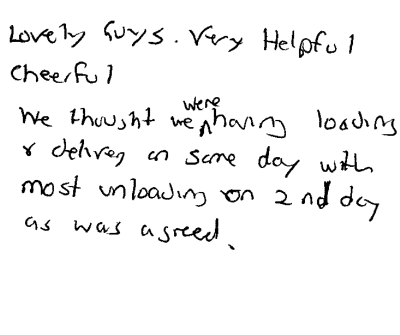 Lovely Guys. Very Helpful
Cheerful
We thought we were having loading
& delivery on same day with
most unloading on 2nd day
as was agreed.